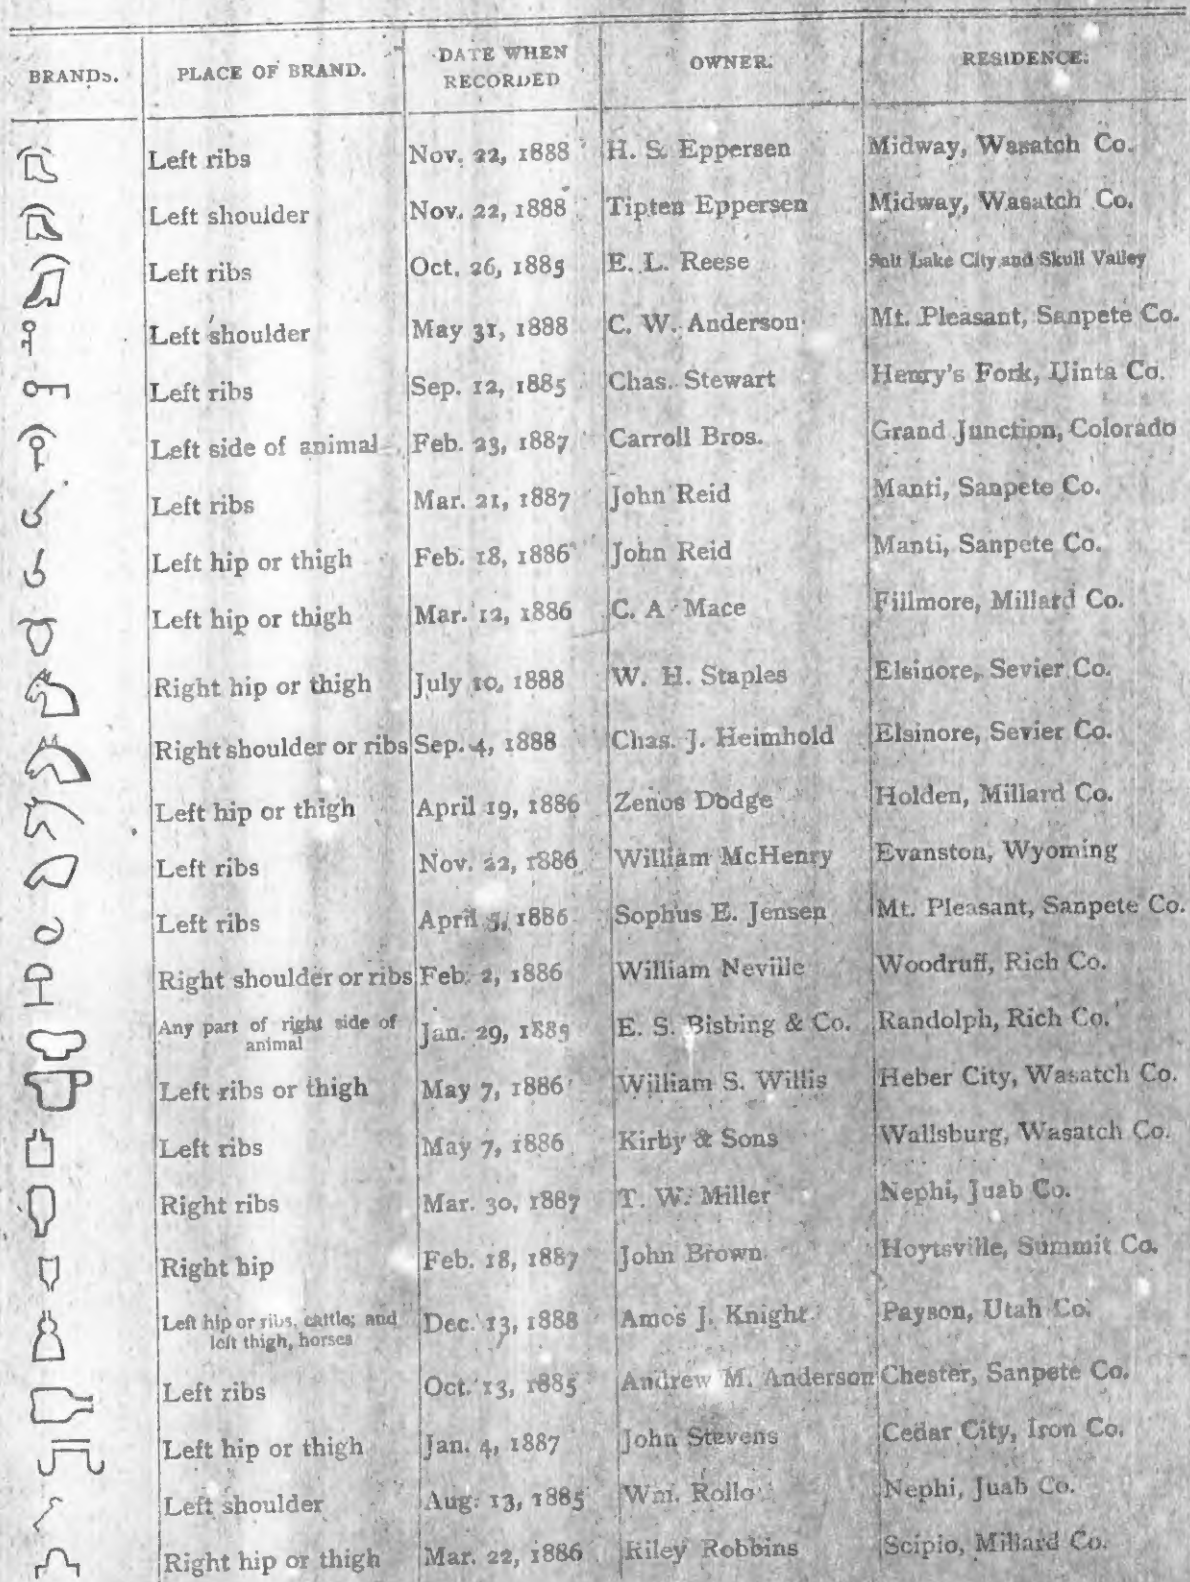 BRANDS. PLACE OF BRAND. DATE WHEN RECORDED OWNER. RESIDENCE.
Left ribs Nov. 22, 1888 H. S. Eppersen Midway, Wasatch Co.
Left shoulder Nov. 22, 1888 Tipten Eppersen Midway, Wasatch Co.
Left ribs Oct. 26, 1885 E. L. Reese Salt Lake City and Skull Valley
Left shoulder May 31, 1888 C. W. Anderson Mt. Pleasant, Sanpete Co.
Left ribs Sep. 12, 1885 Chas. Stewart Henry's Fork, Uinta Co.
Left side of animal Feb. 23, 1887 Carroll Bros. Grand Junction, Colorado
Left ribs Mar. 21, 1887 John Reid Manti, Sanpete Co.
Left hip or thigh Feb. 18, 1886 John Reid Manti, Sanpete Co.
Left hip or thigh Mar. 12, 1886 C. A Mace Fillmore, Millard Co.
Right hip or thigh July 10, 1888 W. H. Staples Elsinore, Sevier Co.
Right shoulder or ribs Sep. 4, 1888 Chas. J. Heimhold Elsinore, Sevier Co.
Left hip or thigh April 19, 1886 Zenos Dodge Holden, Millard Co.
Left ribs Nov. 22, 1886 William McHenry Evanston, Wyoming
Left ribs April 5, 1886 Sophus E. Jensen Mt. Pleasant, Sanpete Co.
Right shoulder or ribs Feb. 2, 1886 William Neville Woodruff, Rich Co.
Any part of right side of animal Jan. 29, 1885 E. S. Bisbing & Co. Randolph, Rich Co.
Left ribs or thigh May 7, 1886 William S. Willis Heber City, Wasatch Co.
Left ribs May 7, 1886 Kirby & Sons Wallsburg, Wasatch Co.
Right ribs Mar. 30, 1887 T. W. Miller Nephi, Juab Co.
Right hip Feb. 18, 1887 John Brown Hoytsville, Summit Co.
Left hip or ribs, cattle; and left thigh, horses Dec. 13, 1888 Amos J. Knight Payson, Utah Co.
Left ribs Oct. 13, 1885 Andrew M. Anderson Chester, Sanpete Co.
Left hip or thigh Jan. 4, 1887 John Stevens Cedar City, Iron Co.
Left shoulder Aug. 13, 1885 Wm. Rollo Nephi, Juab Co.
Right hip or thigh Mar. 22, 1886 Riley Robbins Scipio, Millard Co.